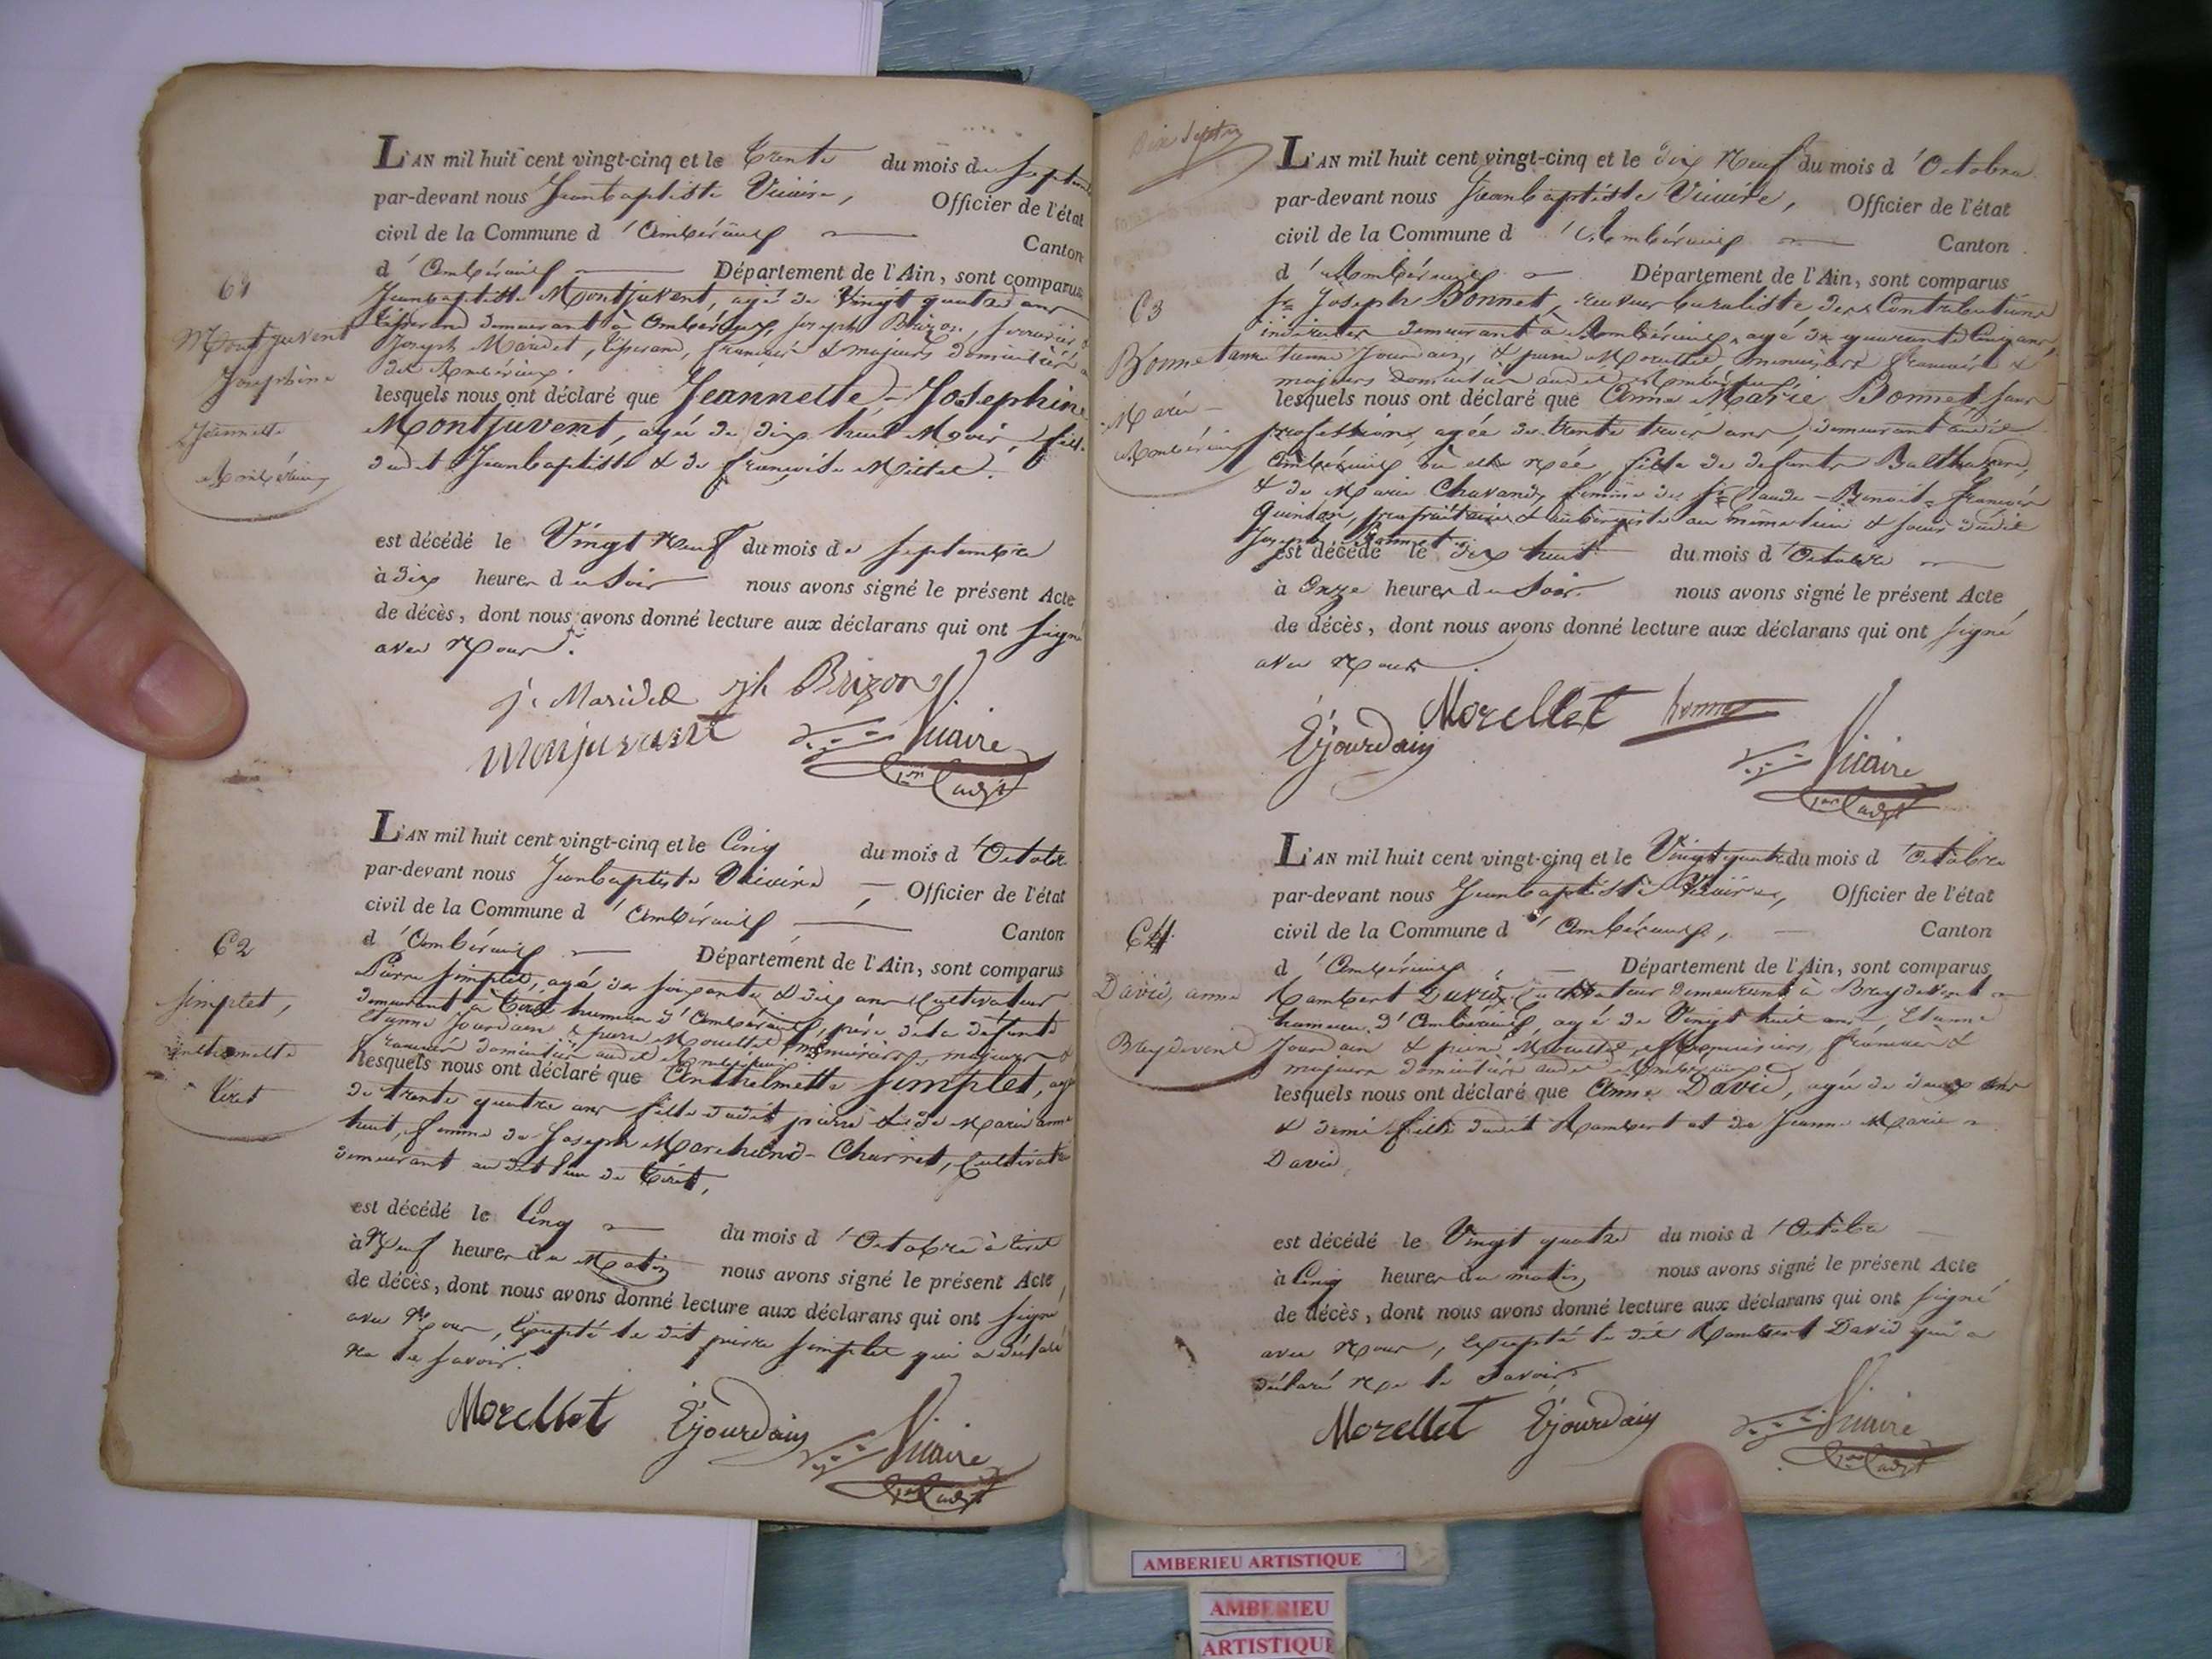 L'AN mil huit cent vingt-cinq et le trente du mois de septembre
par-devant nous Jeanbaptiste Vicaire, Officier de l'état
civil de la Commune d'Ambérieux Canton
d'Ambérieux Département de l'Ain, sont comparus
61
Jeanbaptiste Montjuvent, agé de Vingt quatre ans
tisserand demeurant à Ambérieux, Joseph Brizon, serrurier &
Joseph Maridet, tisserand, français & majeurs domiciliés
dit Ambérieux.
Montjuvent
Josephine
Jeannette
Ambérieux
lesquels nous ont déclaré que Jeannette-Josephine
Montjuvent, agée de dix huit Mois, fille
dudit Jeanbaptiste & de françoise Millet.
est décédé le Vingt Neuf du mois de septembre
à dix heures du soir nous avons signé le présent Acte
de décès, dont nous avons donné lecture aux déclarans qui ont signé
avec Nous.
j. Maridet jh Brizon
monjuvant Vicaire
L'AN mil huit cent vingt-cinq et le Cinq du mois d'Octobre
par-devant nous Jeanbaptiste Vicaire Officier de l'état
civil de la Commune d'Ambérieux Canton
d'Ambérieux Département de l'Ain, sont comparus
62
Simplet,
Anthelmette
Tiret
Pierre Simplet, agé de soixante & dix ans Cultivateur
demeurant à Tiret hameau d'Ambérieux, père de la défunte
Etienne Jourdain & pierre Morellet menuisiers, majeurs &
français domiciliés audit Ambérieux
lesquels nous ont déclaré que Anthelmette Simplet, agée
de trente quatre ans fille dudit pierre & de Marie anne
huit, femme de Joseph Marchand-Charret, Cultivateur
demeurant audit lieu de Tiret,
est décédé le Cinq du mois d'Octobre à tiret
à Neuf heures du Matin nous avons signé le présent Acte
de décès, dont nous avons donné lecture aux déclarans qui ont signé
avec Nous, Excepté le dit pierre Simplet qui a déclaré
ne le savoir.
Morellet Ejourdain Vicaire
Dix Septieme
L'AN mil huit cent vingt-cinq et le dix Neuf du mois d'Octobre
par-devant nous Jeanbaptiste Vicaire, Officier de l'état
civil de la Commune d'Ambérieux Canton
d'Ambérieux Département de l'Ain, sont comparus
63
Bonnet anne
Marie
Ambérieux
Sr Joseph Bonnet, receveur buraliste des Contributions
indirectes demeurant à Ambérieux, agé de quarante Cinq ans,
Etienne Jourdain, & pierre Morellet menuisiers français &
majeurs domiciliés audit Ambérieux
lesquels nous ont déclaré que Anne Marie Bonnet, sans
profession, agée de trente trois ans, demeurant audit
Ambérieux où elle née, fille de défunts Balthazard,
& de Marie Chavand, femme de Sr Claude-Benoit-françois
Guindon, propriétaire & aubergiste au même lieu & soeur dudit
Joseph Bonnet
est décédé le dix huit du mois d'Octobre
à Onze heures du Soir nous avons signé le présent Acte
de décès, dont nous avons donné lecture aux déclarans qui ont signé
avec Nous.
Ejourdain Morellet bonnet
Vicaire
L'AN mil huit cent vingt-cinq et le Vingt quatre du mois d'Octobre
par-devant nous Jeanbaptiste Vicaire, Officier de l'état
civil de la Commune d'Ambérieux, Canton
d'Ambérieux Département de l'Ain, sont comparus
64
David, anne
Breydevent
Rambert David, Cultivateur demeurant à Breydevent
hameau d'Ambérieux, agé de Vingt huit ans, Etienne
Jourdain & pierre Morellet, menuisiers, français &
majeurs domiciliés audit Ambérieux
lesquels nous ont déclaré que Anne David, agée de deux ans
& demi fille dudit Rambert et de Jeanne Marie
David,
est décédé le Vingt quatre du mois d'Octobre
à Cinq heures du matin nous avons signé le présent Acte
de décès, dont nous avons donné lecture aux déclarans qui ont signé
avec Nous, Excepté le dit Rambert David qui a
déclaré Ne le Savoir
Morellet Ejourdain Vicaire
AMBERIEU ARTISTIQUE
AMBERIEU
ARTISTIQUE